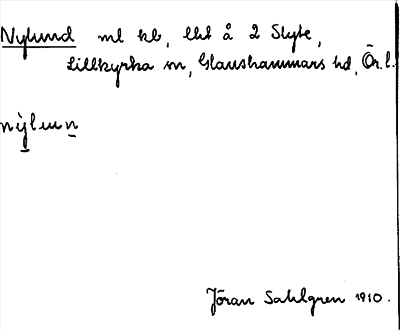 Nylund ml kb, lht å 2 Slyte,
Lillkyrka sn, Glanshammars hd, Ör. l.
nỳlun
Jöran Sahlgren 1910.